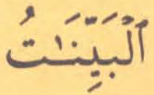 ٱلْبَيِّنَٰتُ